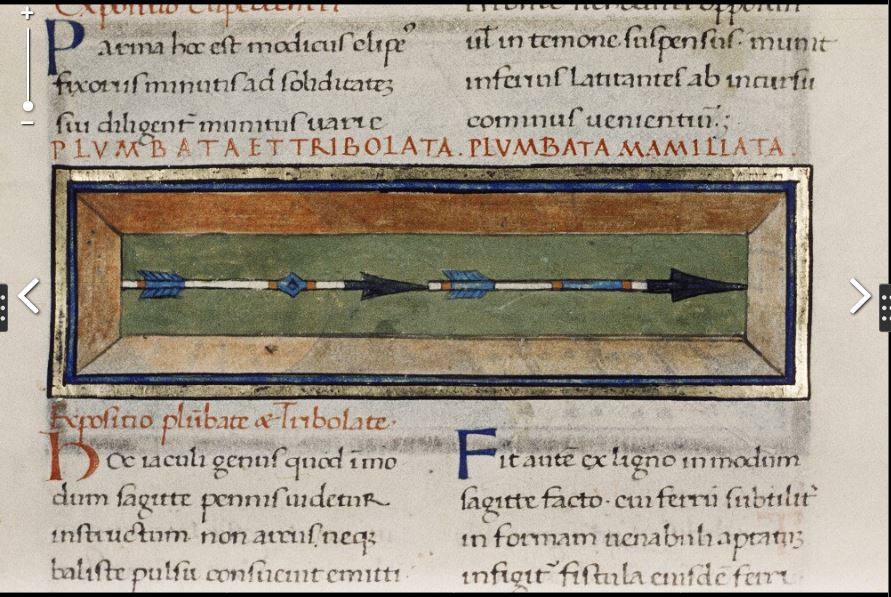 Expositio Clipeocentri
Parma hoc est modicus clipe᾽
fixoriis minutis ad soliditatē
sui diligent̄ munitus uarie
ul̄ in temone suspensus· munit
inferius latitantes ab incursu
cominus uenientiū·;
PLVMBATA ET TRIBOLATA. PLVMBATA MAMILLATA.
Expositio plūbate & Tribolate·
Hoc iaculi genus quod īmo
dum sagitte pennis uidetur
instructum· non arcus, neq;
baliste pulsu consueuit emitti·
Fit autē ex ligno in modum
sagitte facto· cui ferrū subtilit̄
in formam uenabuli aptatū
infigit̄ fistula eiusdē ferri